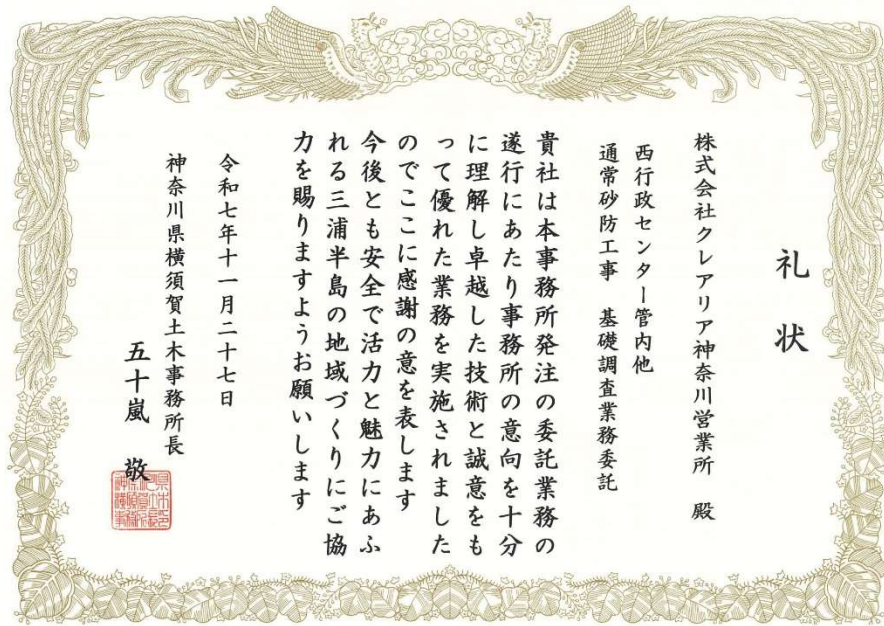 礼状
株式会社クレアリア神奈川営業所　殿
西行政センター管内他
通常砂防工事　基礎調査業務委託
貴社は本事務所発注の委託業務の
遂行にあたり事務所の意向を十分
に理解し卓越した技術と誠意をも
って優れた業務を実施されました
のでここに感謝の意を表します
今後とも安全で活力と魅力にあふ
れる三浦半島の地域づくりにご協
力を賜りますようお願いします
令和七年十一月二十七日
神奈川県横須賀土木事務所長
五十嵐　敬